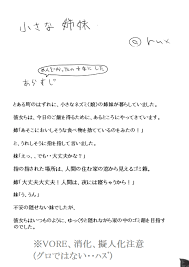 小さな姉妹
あらすじ
とある町のはずれに、小さなネズミ(娘)の姉妹が暮らしていました。
彼女らは、今日のご飯を得るために、あるところにやってきています。
姉「あそこにおいしそうな食べ物を捨てているのをみたの！」
と、うれしそうに指を指して言いました。
妹「えっ、、でも・大丈夫かな？」
指の指された場所は、人間の住む家の窓から見えるゴミ箱。
姉「大丈夫大丈夫！人間は、夜には寝ちゃうから！」
妹「う、うん」
不安の隠せない妹でしたが、
彼女らはいつものように、ゆっくりと隠れながら家の中のゴミ箱を目指すのでした。
※VORE、消化、擬人化注意
(グロではない・・ハズ)